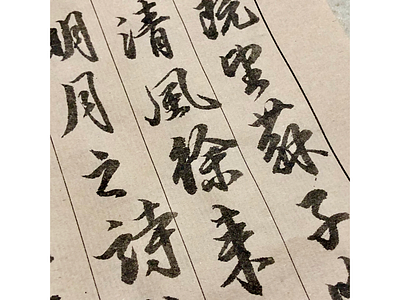 既望蘇子
清風徐來
明月之詩